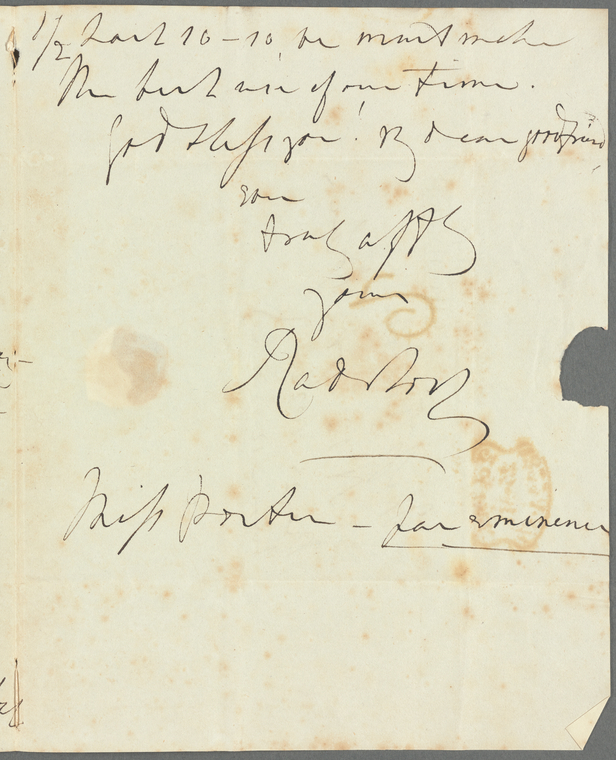 1/2 past 10 – so, we must make
the best use of our time.
God bless you! My dear good friend,
ever
truly affly
yours
Radstock
Miss Porter – par eminence